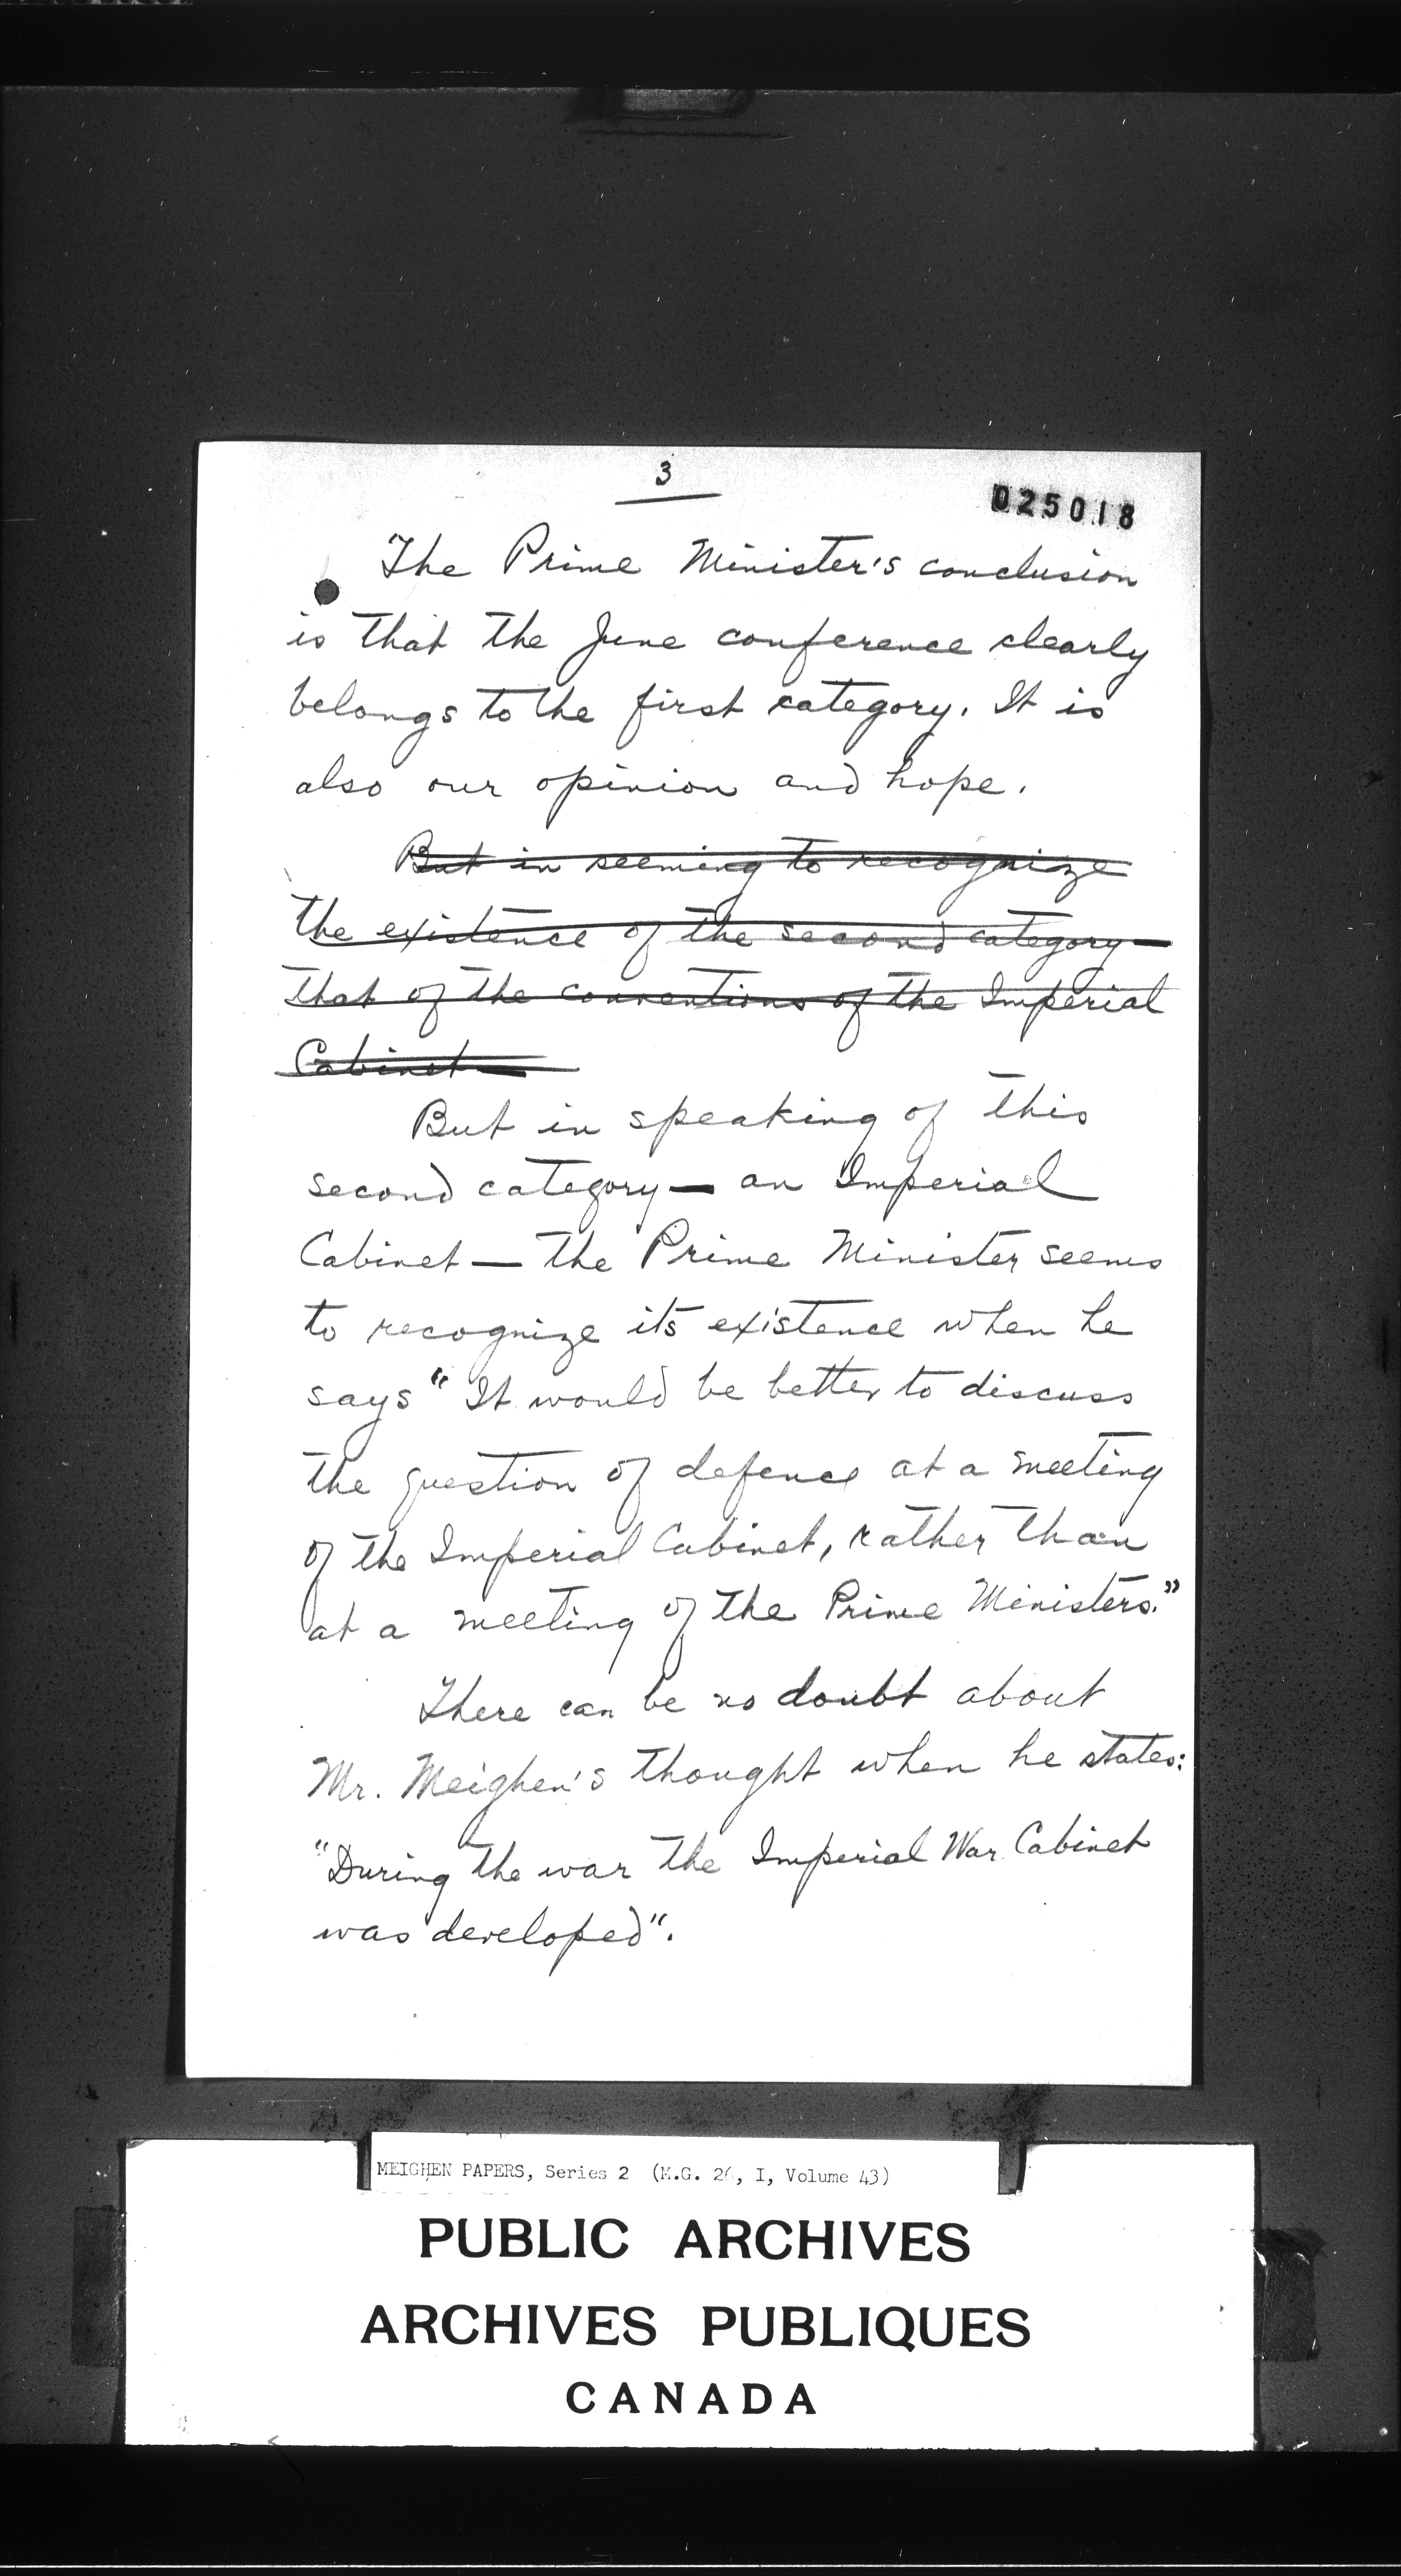 3
025018
The Prime Minister's conclusion
is that the June conference clearly
belongs to the first category. It is
also our opinion and hope.
But in seeming to recognize
the existence of the second category —
that of the conventions of the Imperial
Cabinet —
But in speaking of this
second category — an Imperial
Cabinet — the Prime Minister seems
to recognize its existence when he
says "It would be better to discuss
the question of defence at a meeting
of the Imperial Cabinet, rather than
at a meeting of the Prime Ministers."
There can be no doubt about
Mr. Meighen's thought when he states:
"During the war the Imperial War Cabinet
was developed".
MEIGHEN PAPERS, Series 2 (M.G. 26, I, Volume 43)
PUBLIC ARCHIVES
ARCHIVES PUBLIQUES
CANADA